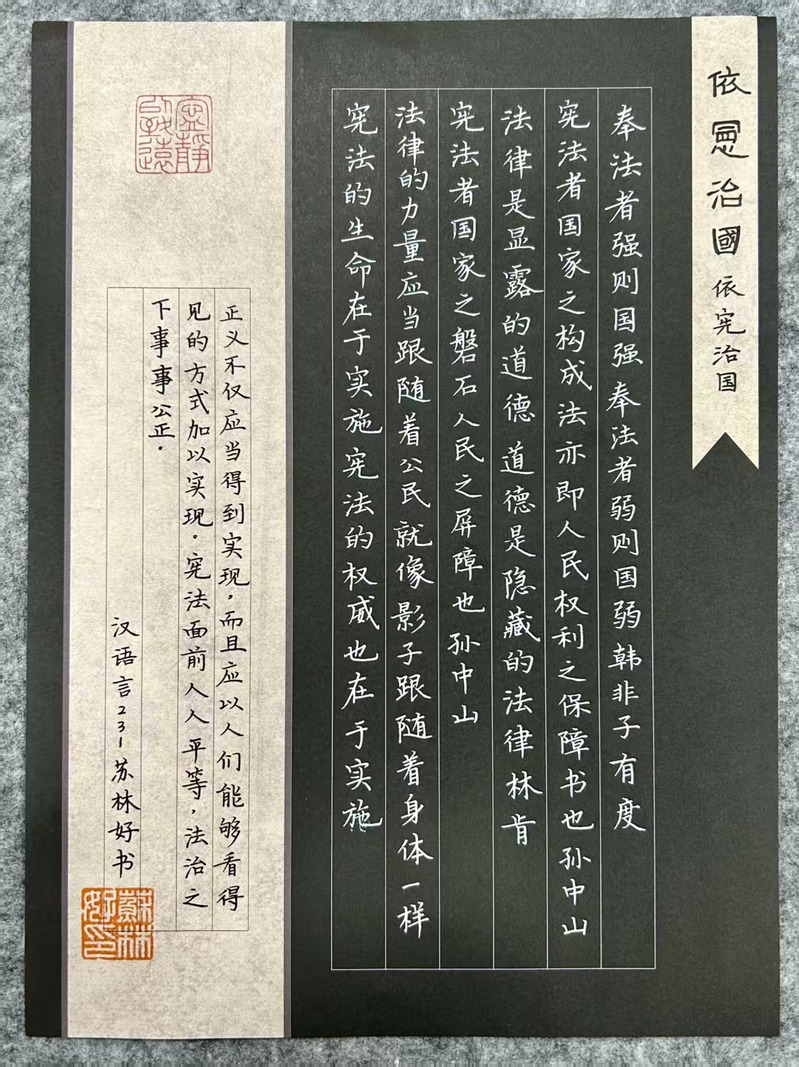 依憲治國 依宪治国
奉法者强则国强奉法者弱则国弱韩非子有度
宪法者国家之构成法亦即人民权利之保障书也孙中山
法律是显露的道德 道德是隐藏的法律林肯
宪法者国家之磐石人民之屏障也 孙中山
法律的力量应当跟随着公民就像影子跟随着身体一样
宪法的生命在于实施宪法的权威也在于实施
寧靜致遠
正义不仅应当得到实现，而且应以人们能够看得
见的方式加以实现。宪法面前人人平等，法治之
下事事公正。
汉语言231苏林好书
蘇林好印